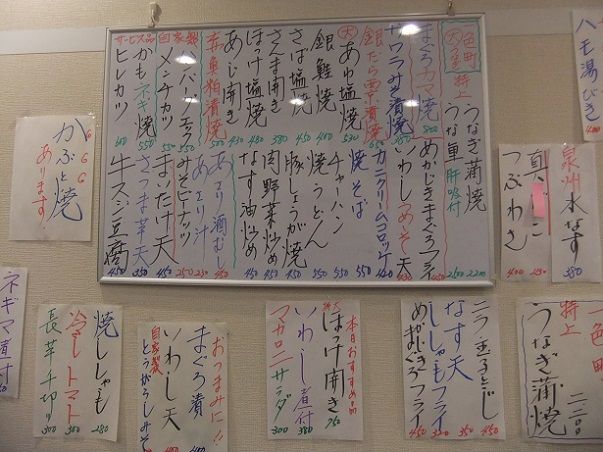 一色町
大うなぎ 特上
うなぎ蒲焼 2200
うな重 肝吸付 2500
まぐろカマ焼 800
めかじきまぐろフライ 450
サワラみそ漬焼
いわしつみそ天
銀だら粟漬焼 650
カニクリームコロッケ 420
大あゆ塩焼 530
焼そば 550
銀鮭焼 400
焼うどん 550
さば塩焼
チャーハン 550
さんま開き 450
豚しょうが焼 450
ほっけ塩焼 380
肉野菜炒め 450
あじ開き 430
なす油炒め
赤魚粕漬焼 500
あさり酒むし 450
あさり汁
ハンバーグ
みそピーナッツ 250
自家製
メンチカツ
まいたけ天
サービス品
かもネギ焼 550
さつま芋天 350
ヒレカツ
牛スジ豆腐 450
ハモ湯びき
泉州水なす 380
つぶわさ 400
GGGG
かぶと焼
あります!
ネギマ煮付
焼ししゃも 280
冷しトマト 300
長芋千切り 300
おつまみに!!
まぐろ漬
いわし天
自家製
とうがらしみそ
本日おすすめ品
ほっけ開き 750
いわし煮付 380
マカロニサラダ 300
ニラ玉子とじ 450
なす天 350
ししゃもフライ 320
めかじきまぐろフライ 450
一色町
特上
うなぎ蒲焼
二二〇〇